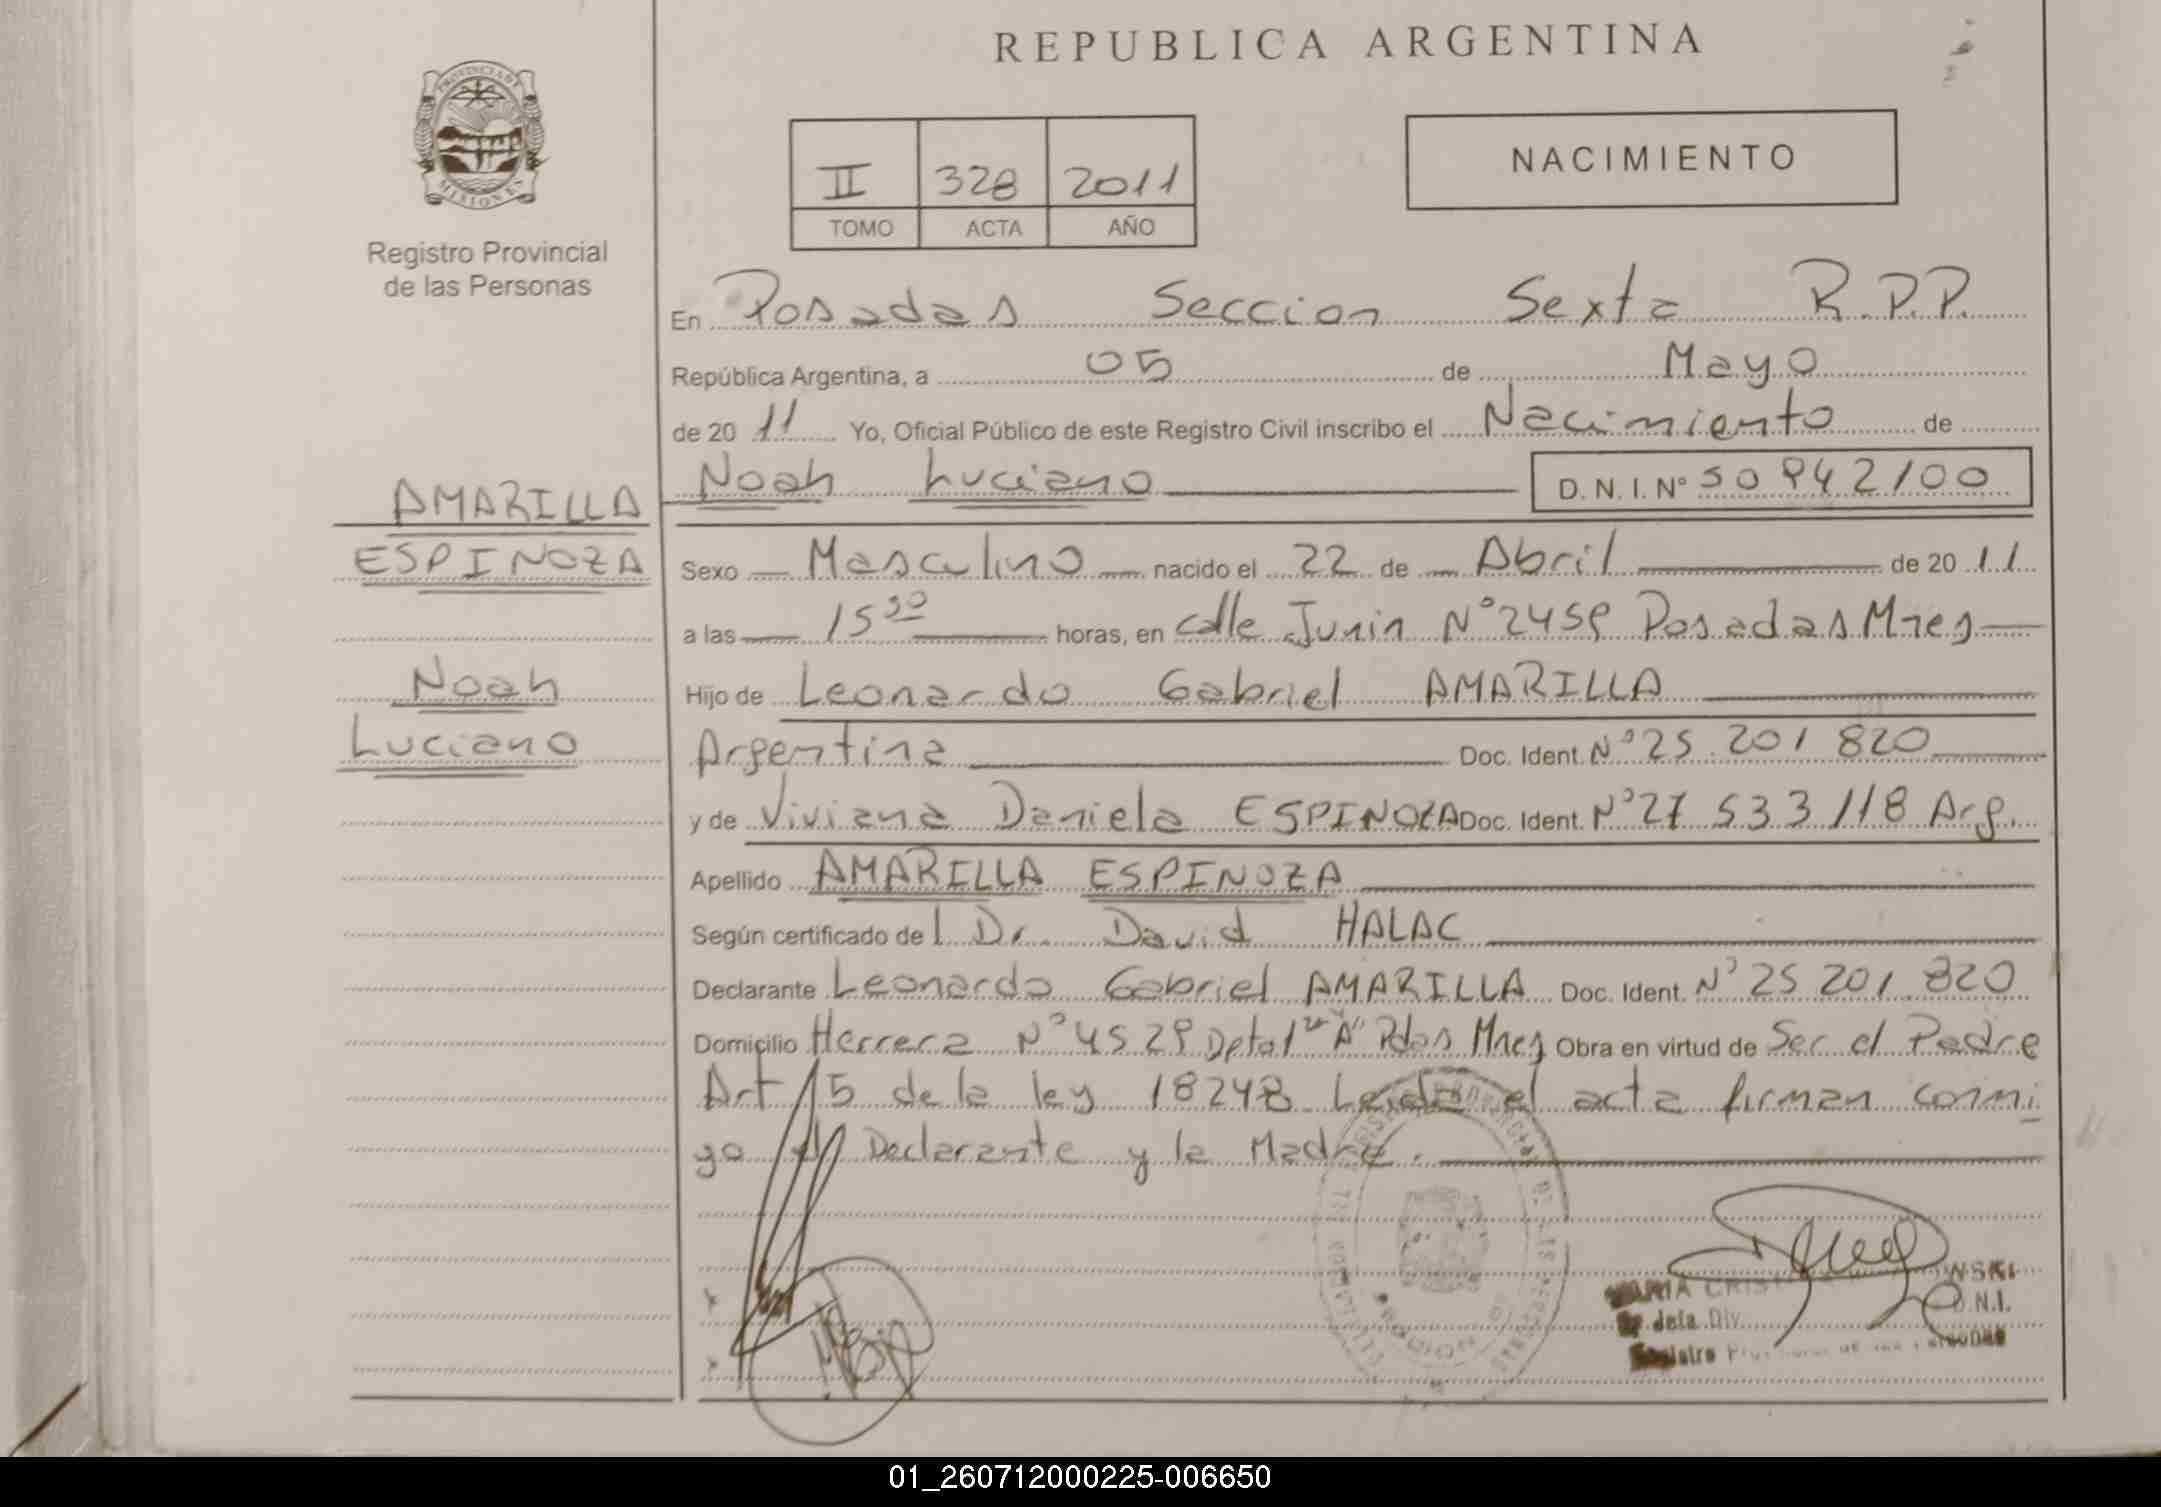 REPUBLICA ARGENTINA
PROVINCIA DE MISIONES
Registro Provincial
de las Personas
II 328 2011
TOMO ACTA AÑO
NACIMIENTO
En Posadas Seccion Sexta R.P.P.
República Argentina, a 05 de Mayo
de 2011 Yo, Oficial Público de este Registro Civil inscribo el Nacimiento de
Noah Luciano D.N.I. Nº 50942100
AMARILLA
ESPINOZA
Noah
Luciano
Sexo Masculino nacido el 22 de Abril de 2011
a las 15 30 horas, en calle Junin Nº 2459 Posadas Mnes
Hijo de Leonardo Gabriel AMARILLA
Argentina Doc. Ident. Nº 25.201.820
y de Viviana Daniela ESPINOZA Doc. Ident. Nº 27 533 118 Arg.
Apellido AMARILLA ESPINOZA
Según certificado del Dr. David HALAC
Declarante Leonardo Gabriel AMARILLA Doc. Ident. Nº 25 201.820
Domicilio Herrera Nº 4529 Dptal "A" Pdas Mnes Obra en virtud de Ser el Padre
Art 15 de la ley 18248 Leida el acta firman conmi
go el Declarante y la Madre.
MARIA CRIS WSKI
D.N.I.
Registro
01_260712000225-006650